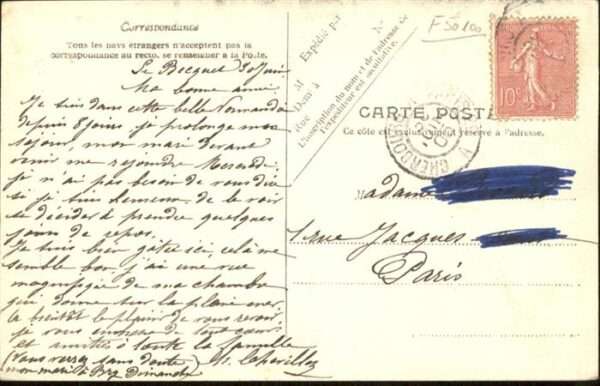 Correspondance
Tous les pays étrangers n'acceptent pas la
correspondance au recto. se renseigner à la Poste.
Le Becquet 30 Juin
Ma bonne amie
Je suis dans cette belle Normandie
depuis 8 jours. je prolonge mon
séjour, mon mari devant
venir me rejoindre Mercredi
je n'ai pas besoin de vous dire
si je suis heureuse de le voir
se décider à prendre quelques
jours de repos.
Je suis bien gâtée ici, cela me
semble bon j'ai une vue
magnifique de ma chambre
qui donne sur la pleine mer.
à bientôt le plaisir de vous revoir
je vous embrasse de tout cœur
et amitiés à toute la famille
(Vous verrez sans doute
mon mari à Dimanche)
Expédié par
M
Rue
N°
Dom à
L'inscription du nom et de l'adresse de
l'expéditeur est facultative.
F 50100
10c
CARTE POSTA
Ce côté est exclusivement réservé à l'adresse.
CHERBOURG
Madame
1 rue Jacques
Paris